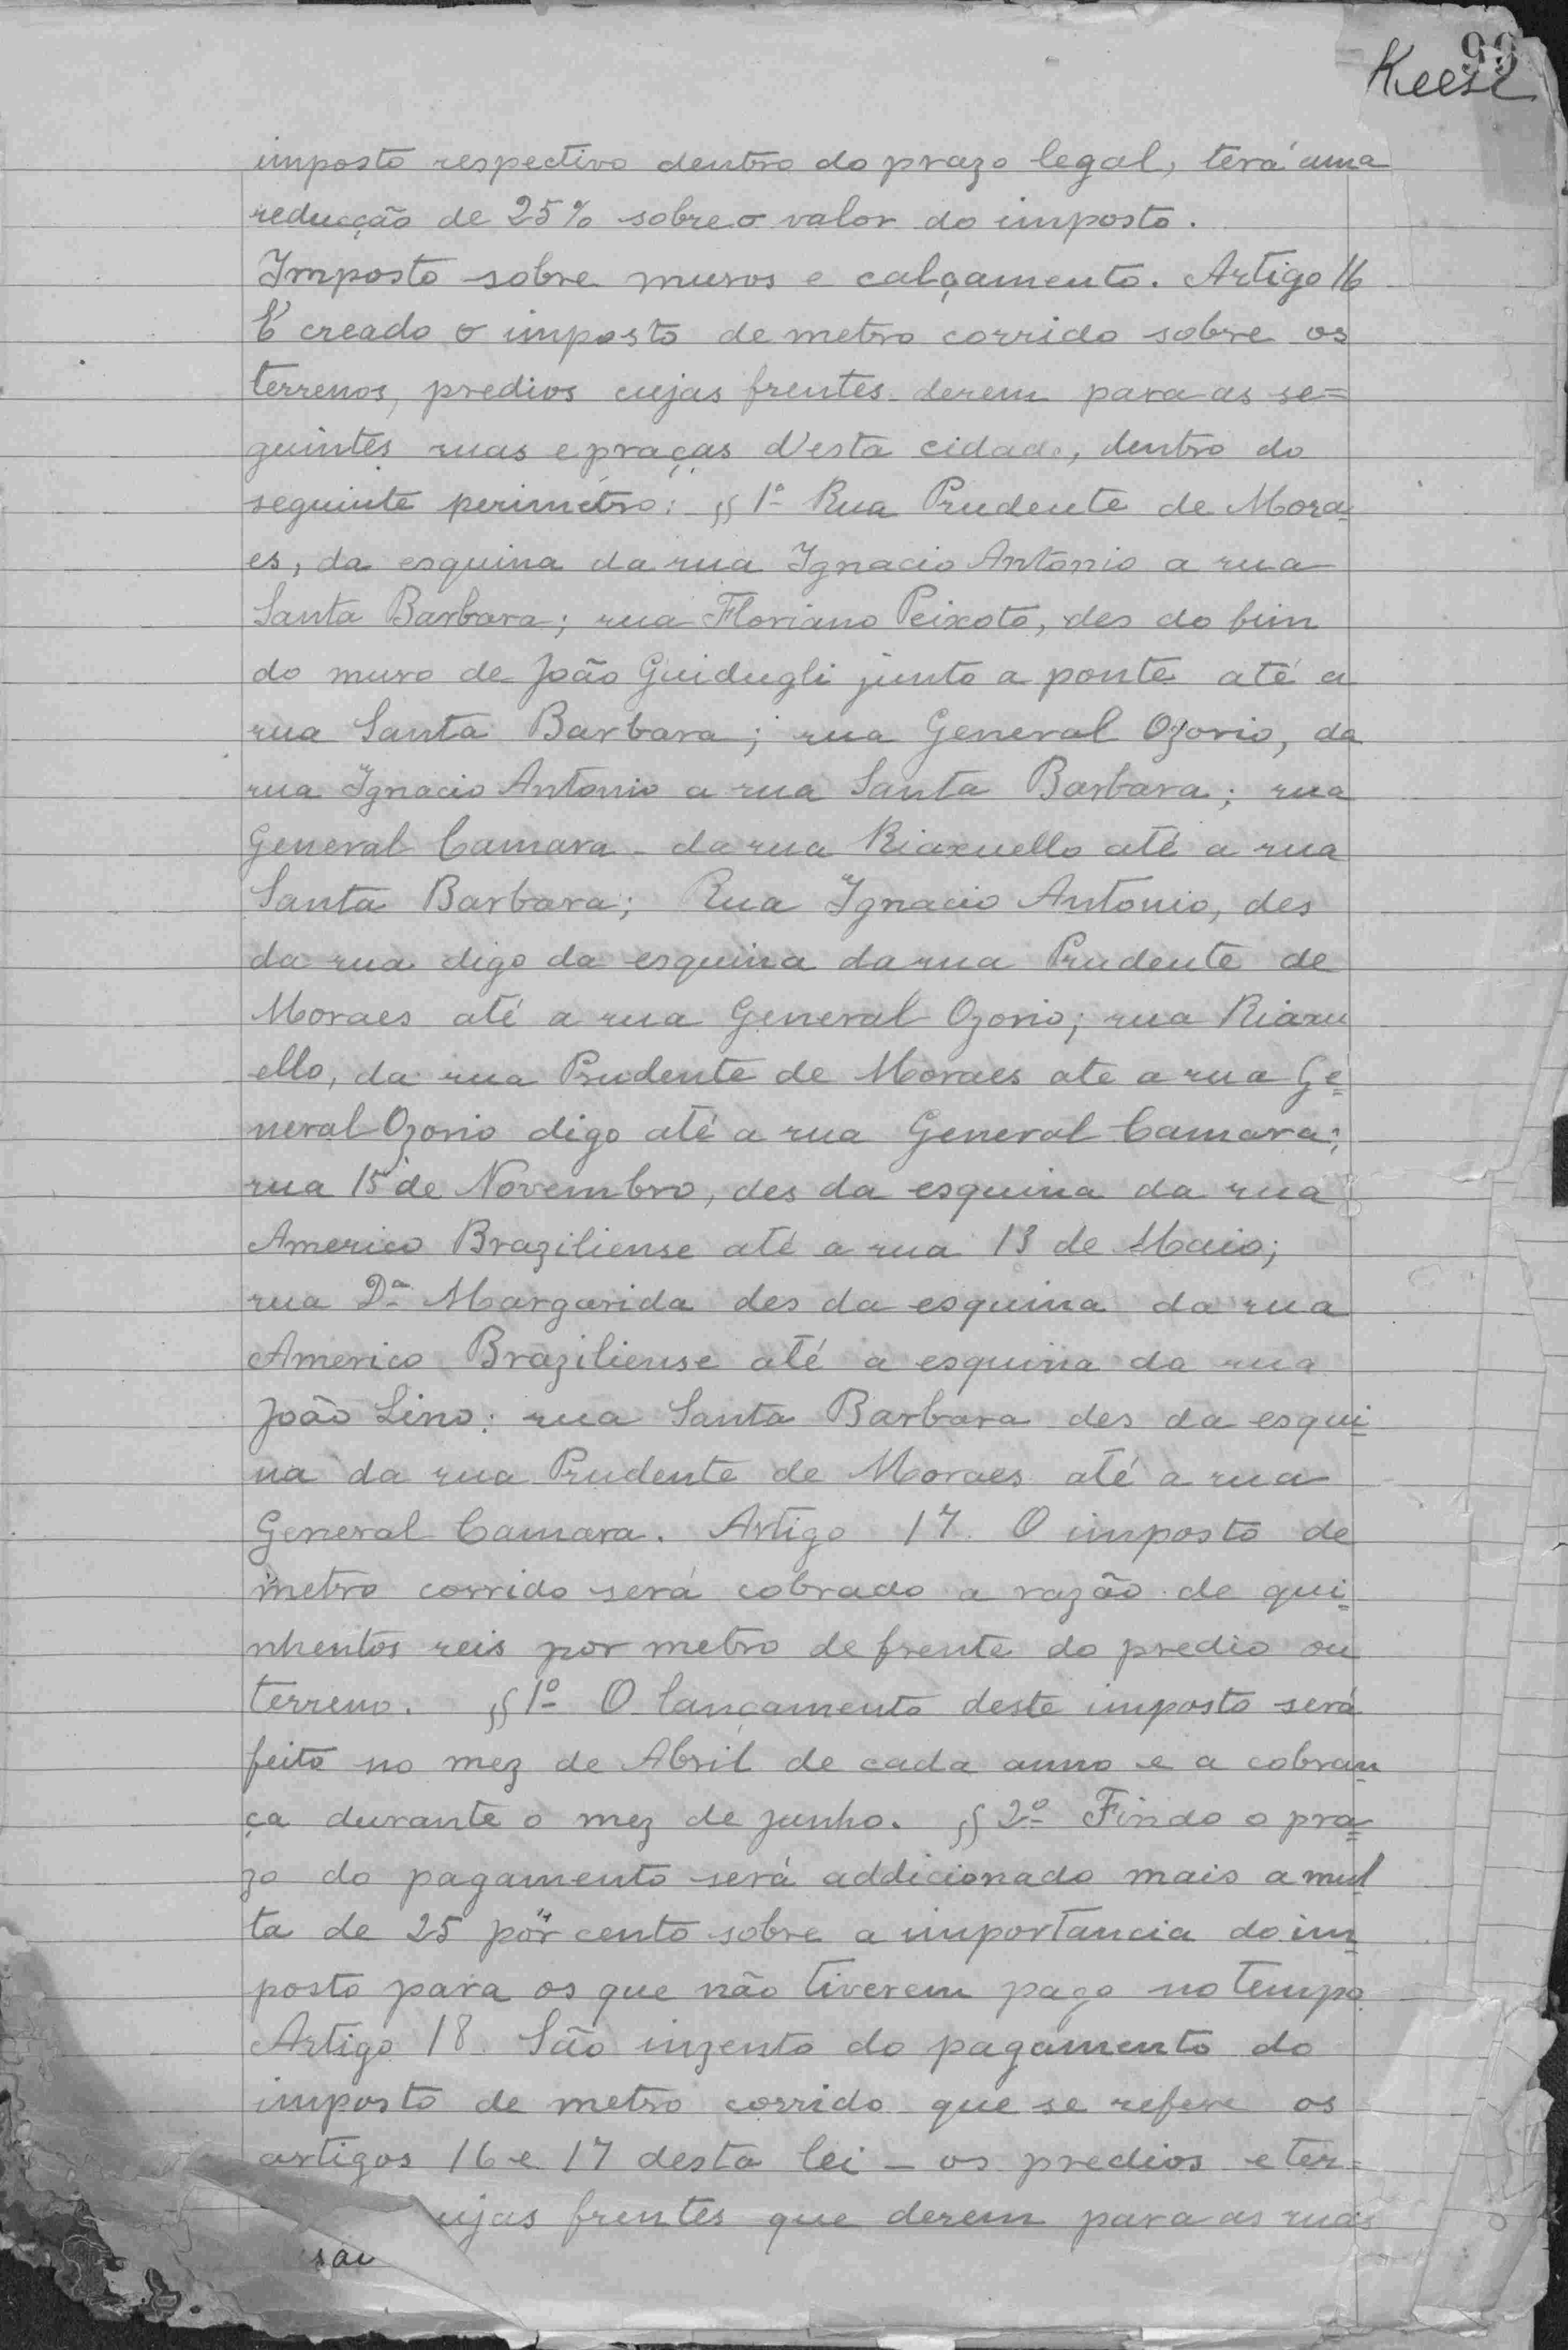 99
Keese
imposto respectivo dentro do prazo legal, terá uma
reducção de 25% sobre o valor do imposto.
Imposto sobre muros e calçamento. Artigo 16
É creado o imposto de metro corrido sobre os
terrenos, predios cujas frentes derem para as se=
guintes ruas e praças d'esta cidade, dentro do
seguinte perimétro: §§ 1º Rua Prudente de Mora-
es, da esquina da rua Ignacio Antonio a rua
Santa Barbara; rua Floriano Peixoto, des do fim
do muro de João Guidugli junto a ponte até a
rua Santa Barbara; rua General Ozorio, da
rua Ignacio Antonio a rua Santa Barbara; rua
General Camara da rua Riaxuello até a rua
Santa Barbara; Rua Ignacio Antonio, des
da rua digo da esquina da rua Prudente de
Moraes até a rua General Ozorio; rua Riaxu
ello, da rua Prudente de Moraes ate a rua Ge=
neral Ozorio digo até a rua General Camara;
rua 15 de Novembro, des da esquina da rua
Americo Braziliense até a rua 13 de Maio;
rua Dª Margarida des da esquina da rua
Americo Braziliense até a esquina da rua
João Lino: rua Santa Barbara des da esqui-
na da rua Prudente de Moraes até a rua
General Camara. Artigo 17. O imposto de
metro corrido será cobrado a razão de qui=
nhentos reis por metro de frente do predio ou
terreno. §§ 1º O lançamento deste imposto será
feito no mez de Abril de cada anno e a cobran=
ça durante o mez de Junho. §§ 2º Findo o pra=
zo do pagamento será addicionado mais a mul
ta de 25 por cento sobre a importancia do im=
posto para os que não tiverem pago no tempo.
Artigo 18. São inzento do pagamento do
imposto de metro corrido que se refere os
artigos 16 e 17 desta lei - os predios e ter=
ujas frentes que derem para as ruas